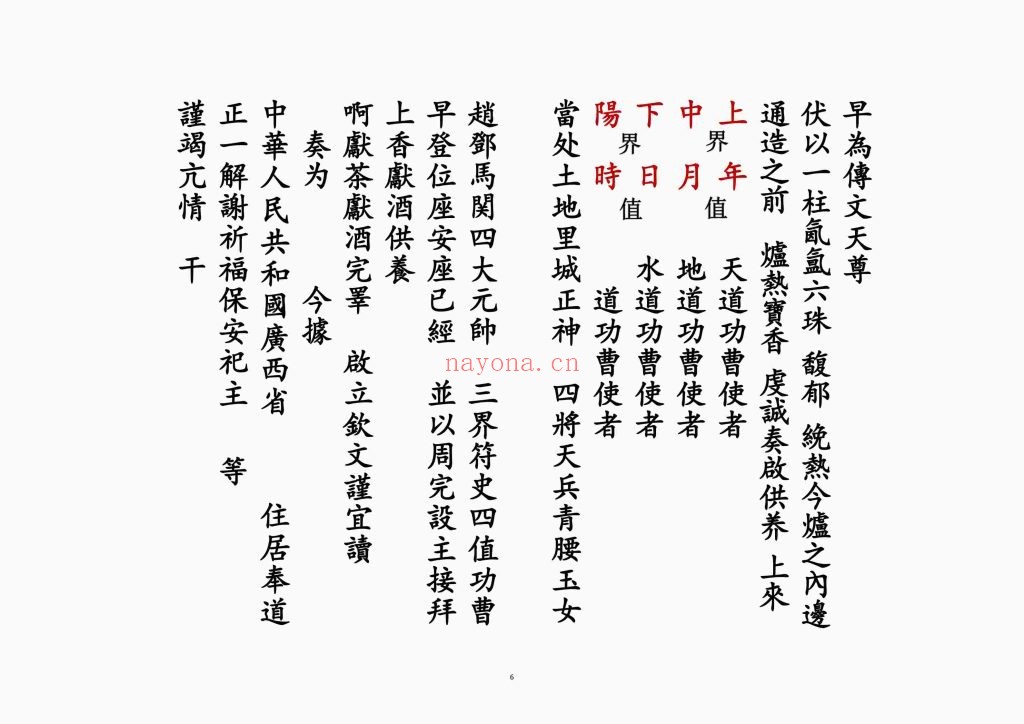 早為傳文天尊
伏以一柱氤氳六珠 馥郁 綩熱今爐之內邊
通造之前 爐熱寶香 虔誠奏啟供养 上來
上 年 天道功曹使者
界 值
中 月 地道功曹使者
下 日 水道功曹使者
界 值
陽 時 道功曹使者
當处土地里城正神 四將天兵青腰玉女
趙鄧馬関四大元帥 三界符史四值功曹
早登位座安座已經 並以周完設主接拜
上香獻酒供養
啊獻茶獻酒完畢 啟立欽文謹宜讀
奏为 今據
中華人民共和國廣西省 住居奉道
正一解謝祈福保安祀主 等
謹竭亢情 干
nayona.cn
6